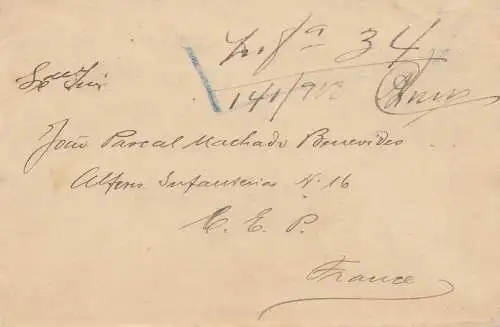 Inf.ª 34
141/918
João Pascal Machado Benevides
Alferes Infanteria N. 16
C. E. P.
France